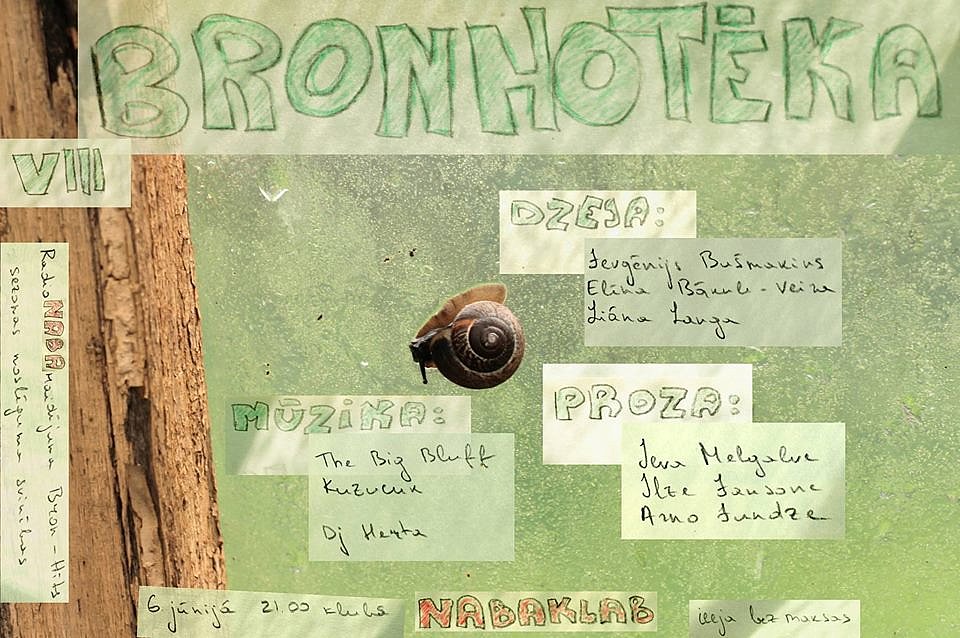 BRONHOTĒKA
VIII
Radio NABA raidījuma Bron-Hīts
sezonas noslēguma svinības
DZEJA:
Jevgēnijs Bušmakins
Elīna Bākule-Veira
Liāna Langa
MŪZIKA:
The Big Bluff
Kuzucuk
Dj Herta
PROZA:
Ieva Melgalve
Ilze Jansone
Arno Jundze
6 jūnijā 21.00 klubā
NABAKLAB
ieeja bez maksas